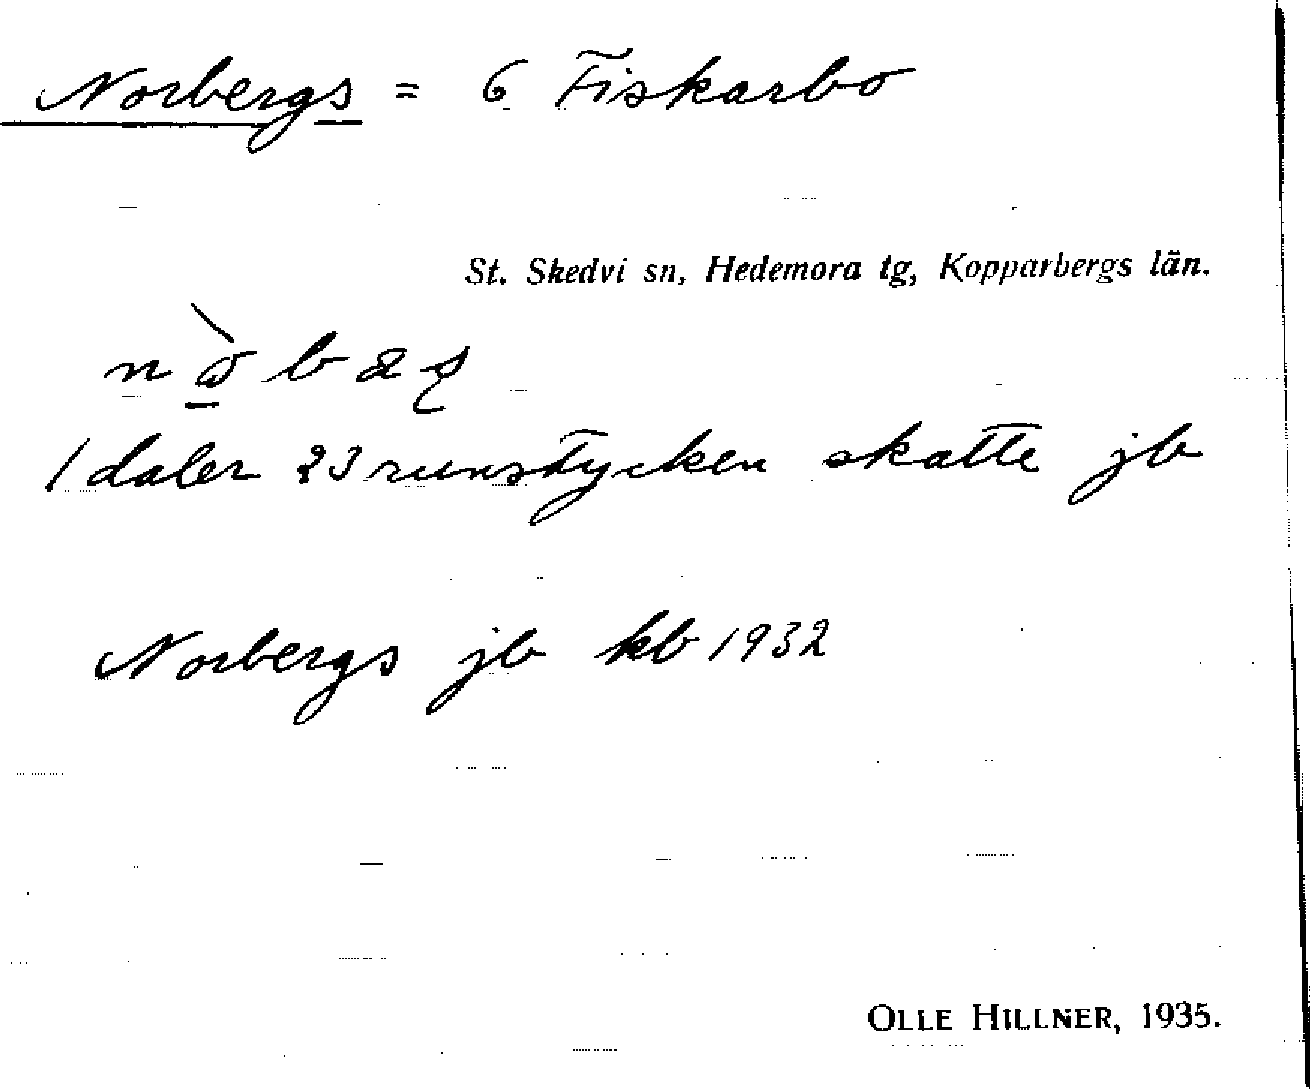 Norbergs = 6 Fiskarbo
St. Skedvi sn, Hedemora tg, Kopparbergs län.
1 daler 23 runstycken skatte jb
Norbergs jb kb 1932
OLLE HILLNER, 1935.